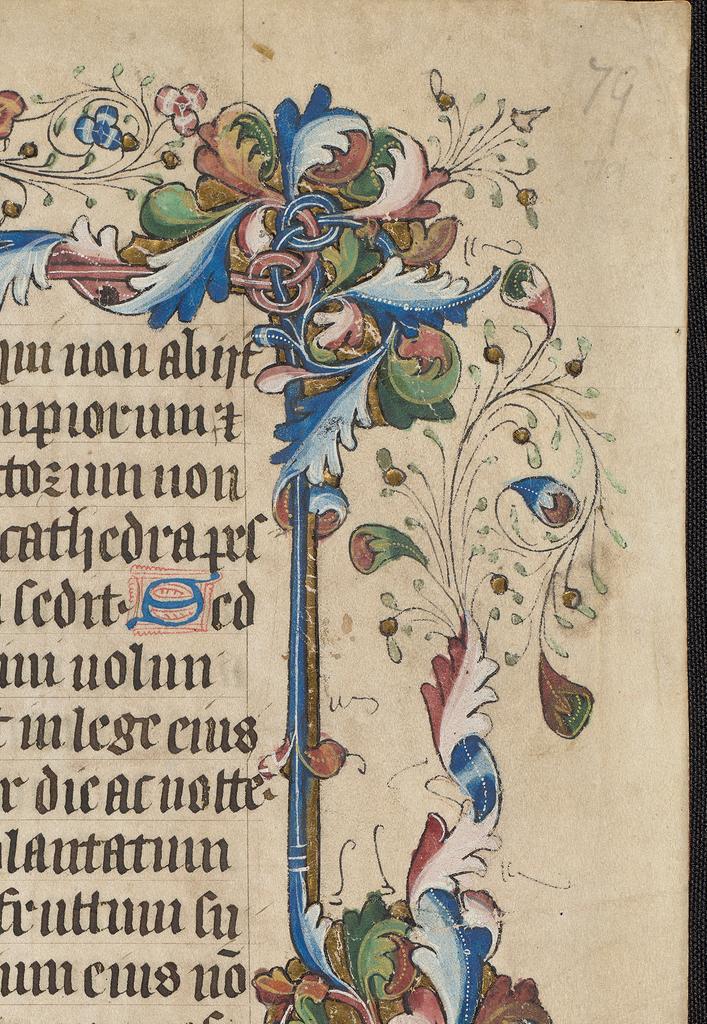 79
qui non abijt
mpiorum ⁊
torum non
cathedra pes
sedit Sed
uolun
in lege eius
r die ac nocte
plantatum
fructum su
um eius nō